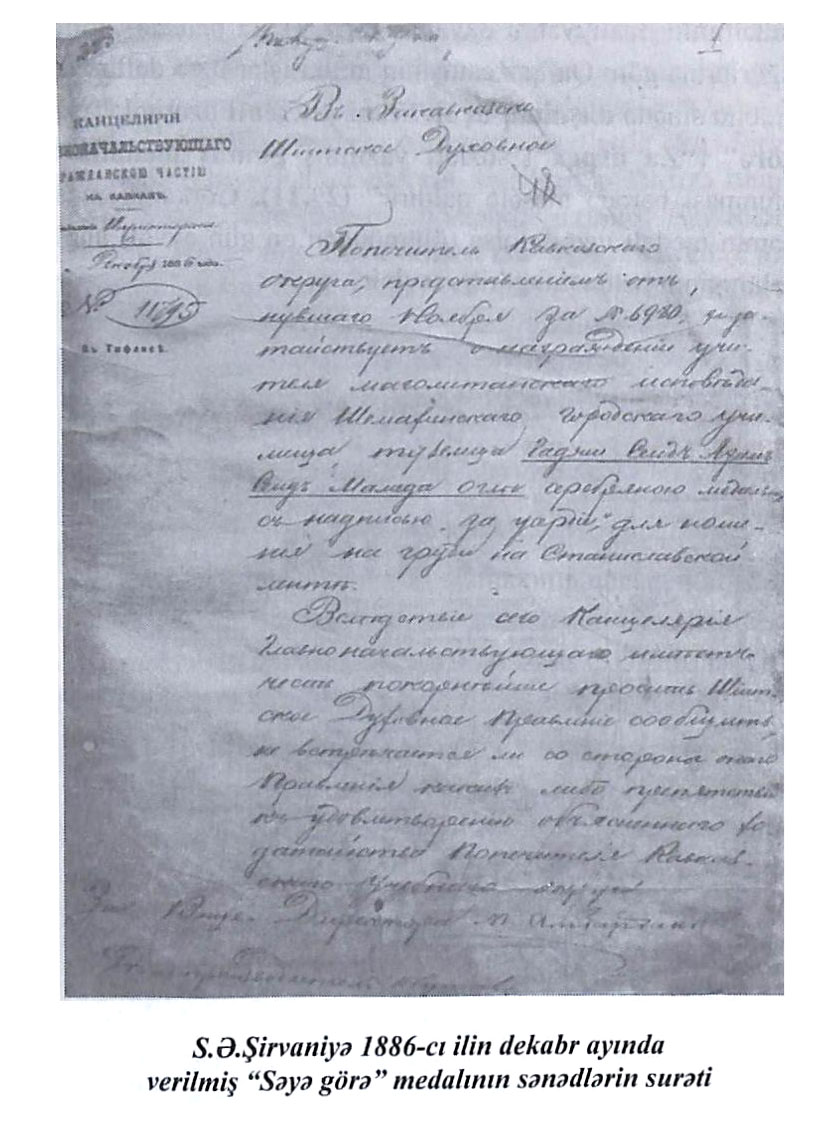 КАНЦЕЛЯРІЯ
НОНАЧАЛЬСТВУЮЩАГО
РАЖДАНСКОЮ ЧАСТІЮ
НА КАВКАЗѢ
Декабря 1886 года
№ 11795
въ Тифлисѣ.
Въ Закавказское
Шіитское Духовное
Попечитель Кавказскаго
округа, представленіемъ отъ
нувшаго Ноября за № 6980, хода-
тайствуетъ о награжденіи учи-
теля магометанскаго исповѣда-
нія Шемахинскаго городскаго учи-
лища туземца Гаджи Сеидъ Азимъ
Сеидъ Мамада оглы серебряною медалью
съ надписью „за усердіе“, для ноше-
нія на груди на Станиславской
лентѣ.
Вслѣдствіе сего Канцелярія
Главноначальствующаго имѣетъ
честь покорнѣйше просить Шіит-
ское Духовное Правленіе сообщить,
не встрѣчается ли со стороны этого
Правленія какихъ либо препятствій
къ удовлетворенію объясненнаго хо-
датайства Попечителя Кавказ-
скаго Учебнаго округа
За Вице-Директора
S.Ə.Şirvaniyə 1886-cı ilin dekabr ayında
verilmiş “Səyə görə” medalının sənədlərin surəti